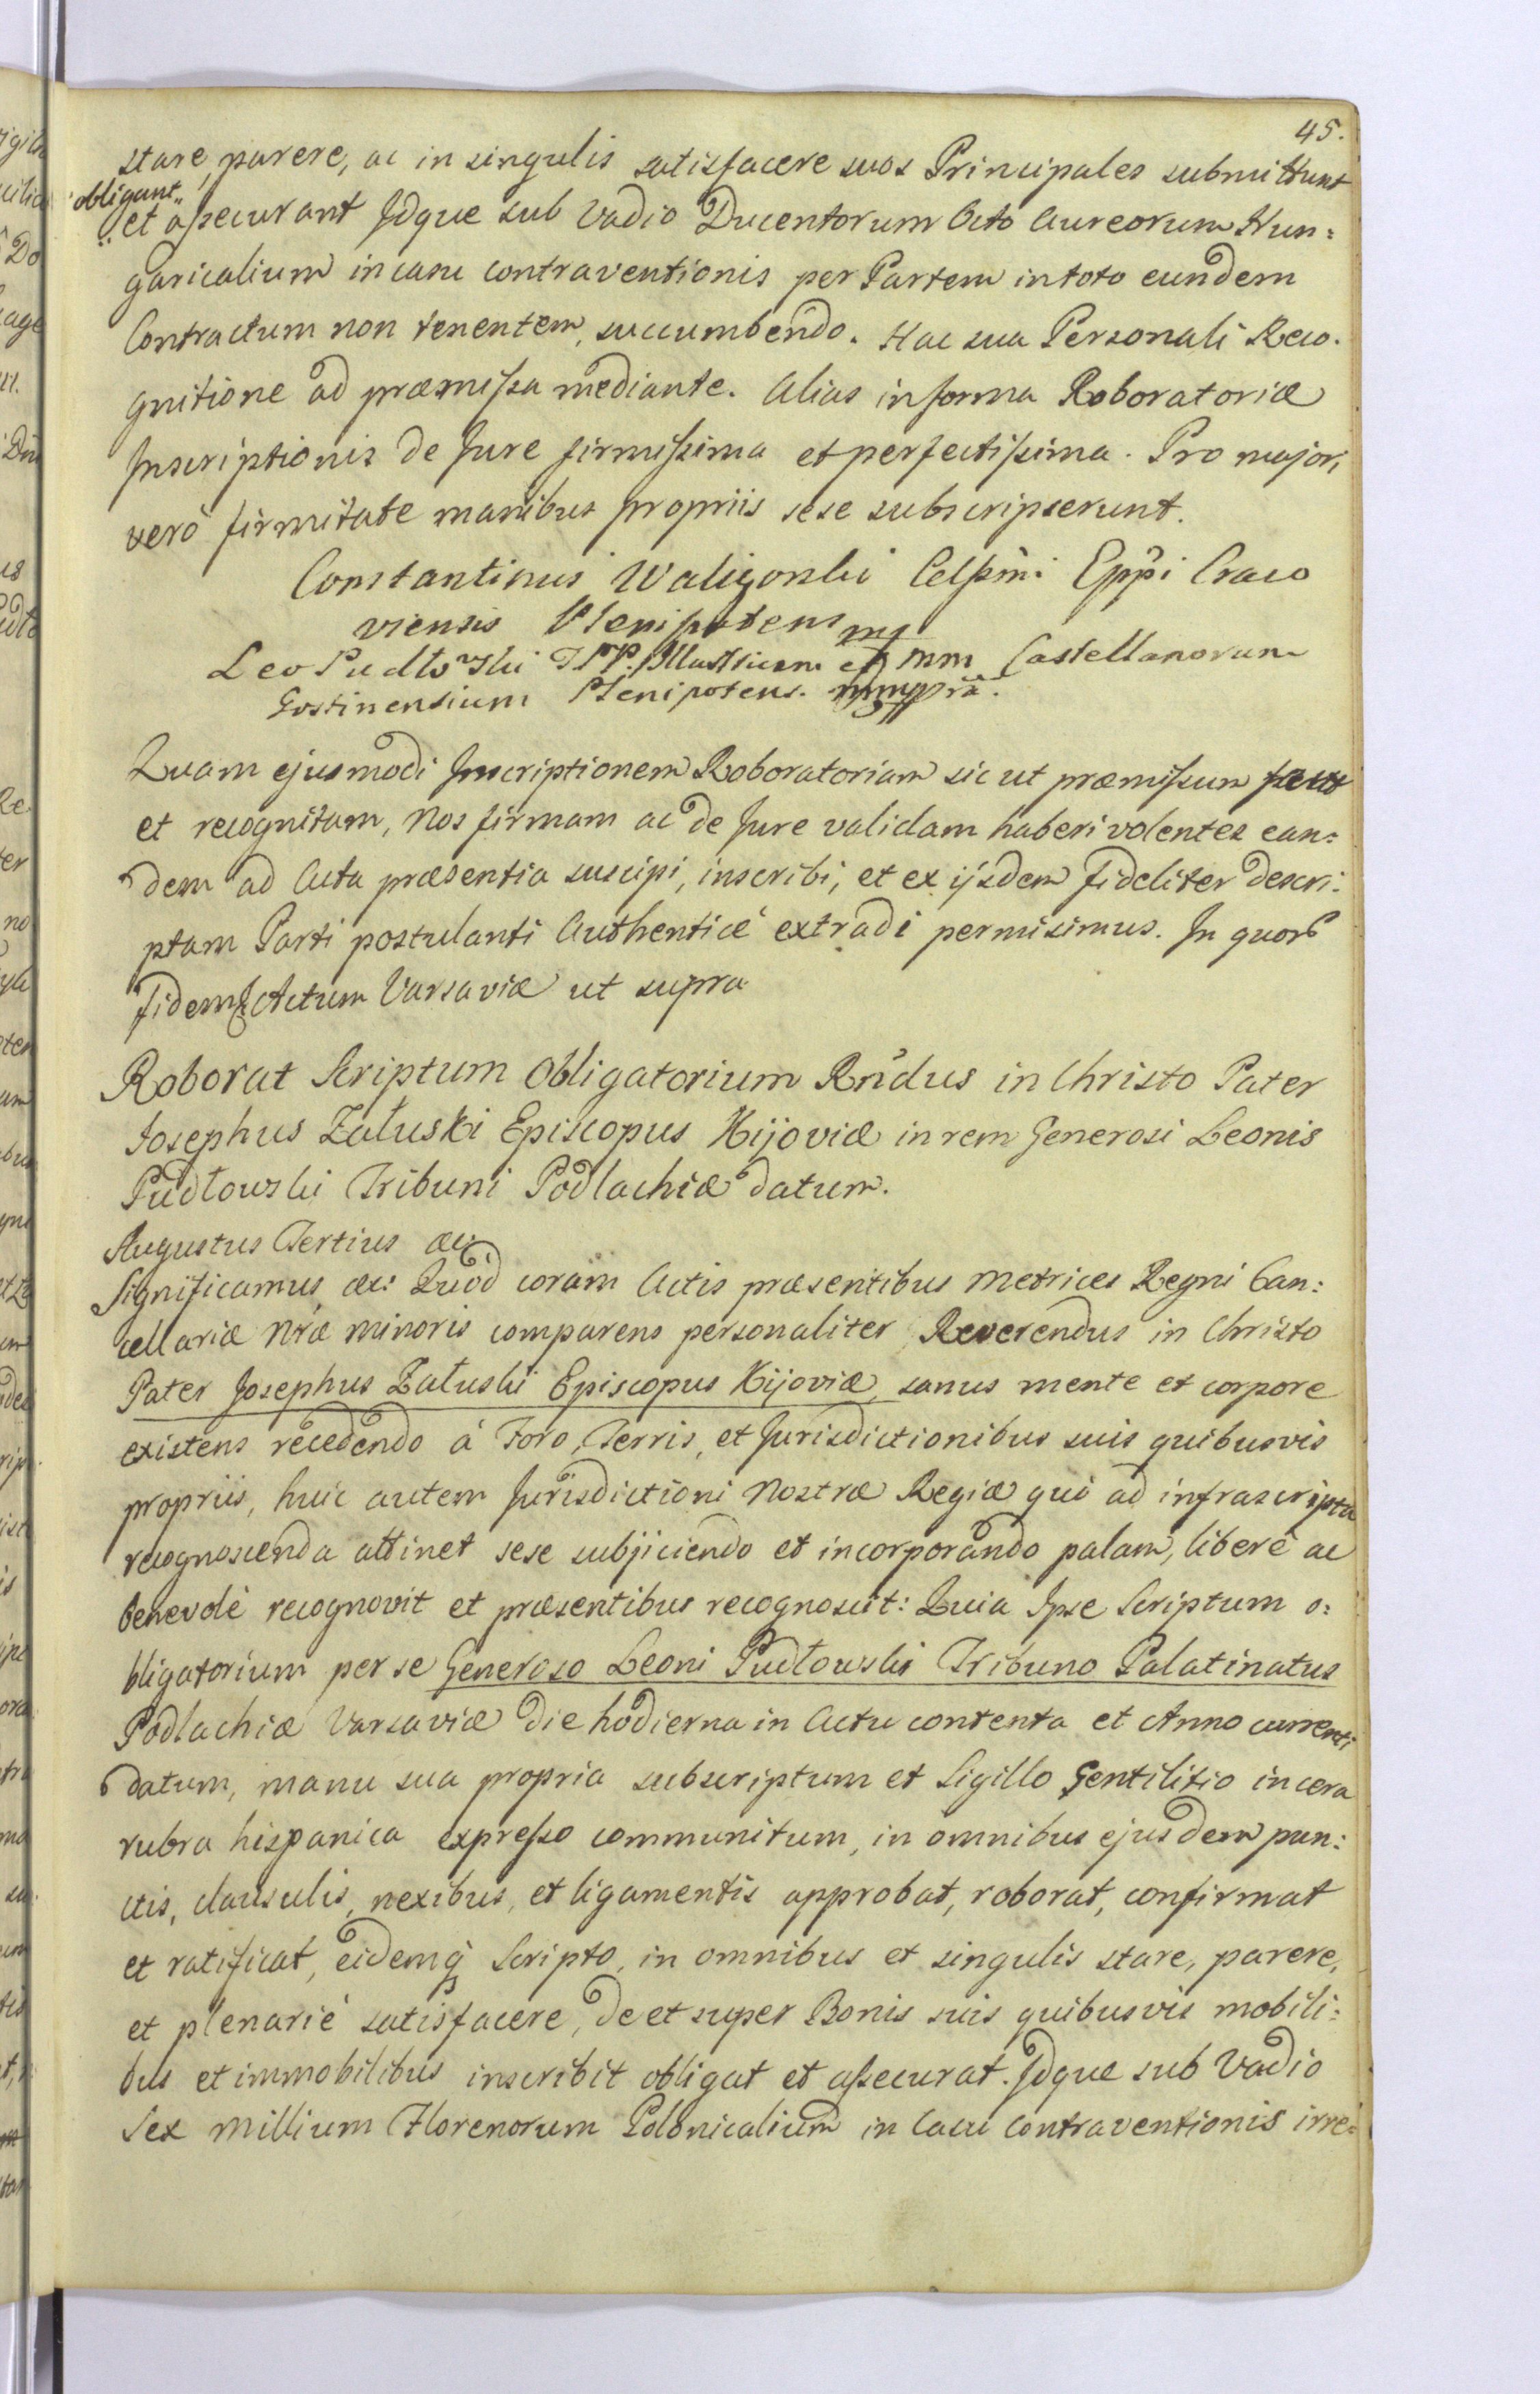 45.
stare, parere, ac in singulis satisfacere suos Principales submittunt
obligant„
„et assecurant Idque sub Vadio Ducentorum Octo Aureorum Hun:
garicalium in casu contraventionis per Partem in toto eundem
Contractum non tenentem, succumbendo. Hac sua Personali Reco.
gnitione ad præmissa mediante. Alias in forma Roboratoriæ
Inscriptionis de Jure firmissima et perfectissima. Pro majori
verò firmitate manibus propriis sese subscripserunt.
Constantinus Waligorski Celssmi Eppi Craco
viensis Plenipotens mp
Leo Pudłowski I PP. Illustrium et MM Castellanorum
Gostinensium Plenipotens.
Quam ejusmodi Inscriptionem Roboratoriam sic ut præmissum
et recognitam, Nos firmam ac de Jure validam haberi volentes ean:
dem ad Acta præsentia suscipi, inscribi, et ex ijsdem fideliter descri:
ptam Parti postulanti Authenticè extradi permisimus. In quor
fidem &c Actum Varsaviæ ut supra
Roborat Scriptum Obligatorium Rndus in Christo Pater
Josephus Załuski Episcopus Kijoviæ in rem Generosi Leonis
Pudłowski Tribuni Podlachiæ datum.
Augustus Tertius &c:
Significamus &c: Quòd coram Actis præsentibus Metrices Regni Can:
cellariæ Nræ Minoris comparens personaliter Reverendus in Christo
Pater Josephus Załuski Episcopus Kijoviæ, sanus mente et corpore
existens recedendo à Foro, Terris, et Jurisdictionibus suis quibusvis
propriis, huic autem Jurisdictioni Nostræ Regiæ quò ad infrascripta
recognoscenda attinet sese subjiciendo et incorporando palam, liberè ac
benevolè recognovit et præsentibus recognoscit: Quia Ipse Scriptum o:
bligatorium per se Generoso Leoni Pudłowski Tribuno Palatinatus
Podlachiæ Varsaviæ die hodierna in Actu contenta et Anno currenti
datum, manu sua propria subscriptum et Sigillo Gentilitio in cera
rubra hispanica expresso communitum, in omnibus ejusdem pun:
ctis, clausulis, nexibus, et ligamentis approbat, roborat, confirmat
et ratificat, eidemq; Scripto, in omnibus et singulis stare, parere,
et plenariè satisfacere, de et super Bonis suis quibusvis mobili:
bus et immobilibus inscribit obligat et assecurat. Idque sub Vadio
Sex Millium Florenorum Polonicalium in Casu contraventionis irre: